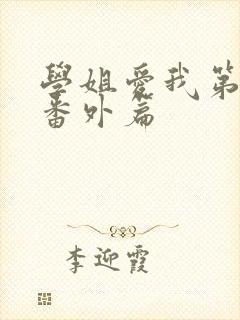 學姐愛我第
番外篇
李迎霞